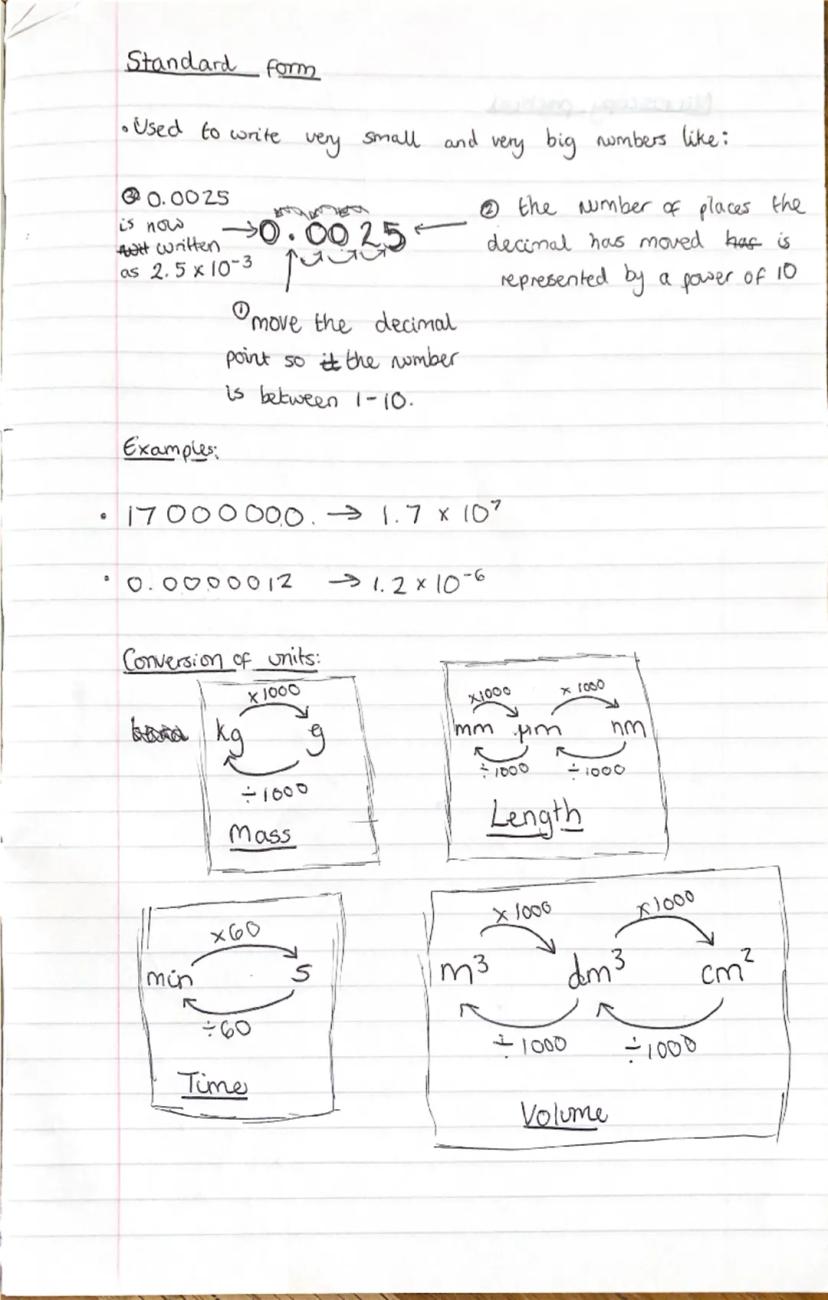 Standard form
• Used to write very small and very big numbers like:
③ 0.0025
is now
written
as 2.5 x 10⁻³
0.0025
② the number of places the
decimal has moved has is
represented by a power of 10
① move the decimal
point so it the number
is between 1-10.
Examples:
• 17000000. → 1.7 x 10⁷
• 0.0000012 → 1.2 x 10⁻⁶
Conversion of units:
x1000
kg g
÷1000
Mass
x1000 x1000
mm µm nm
÷1000 ÷1000
Length
x60
min s
÷60
Time
x1000 x1000
m³ dm³ cm²
÷1000 ÷1000
Volume